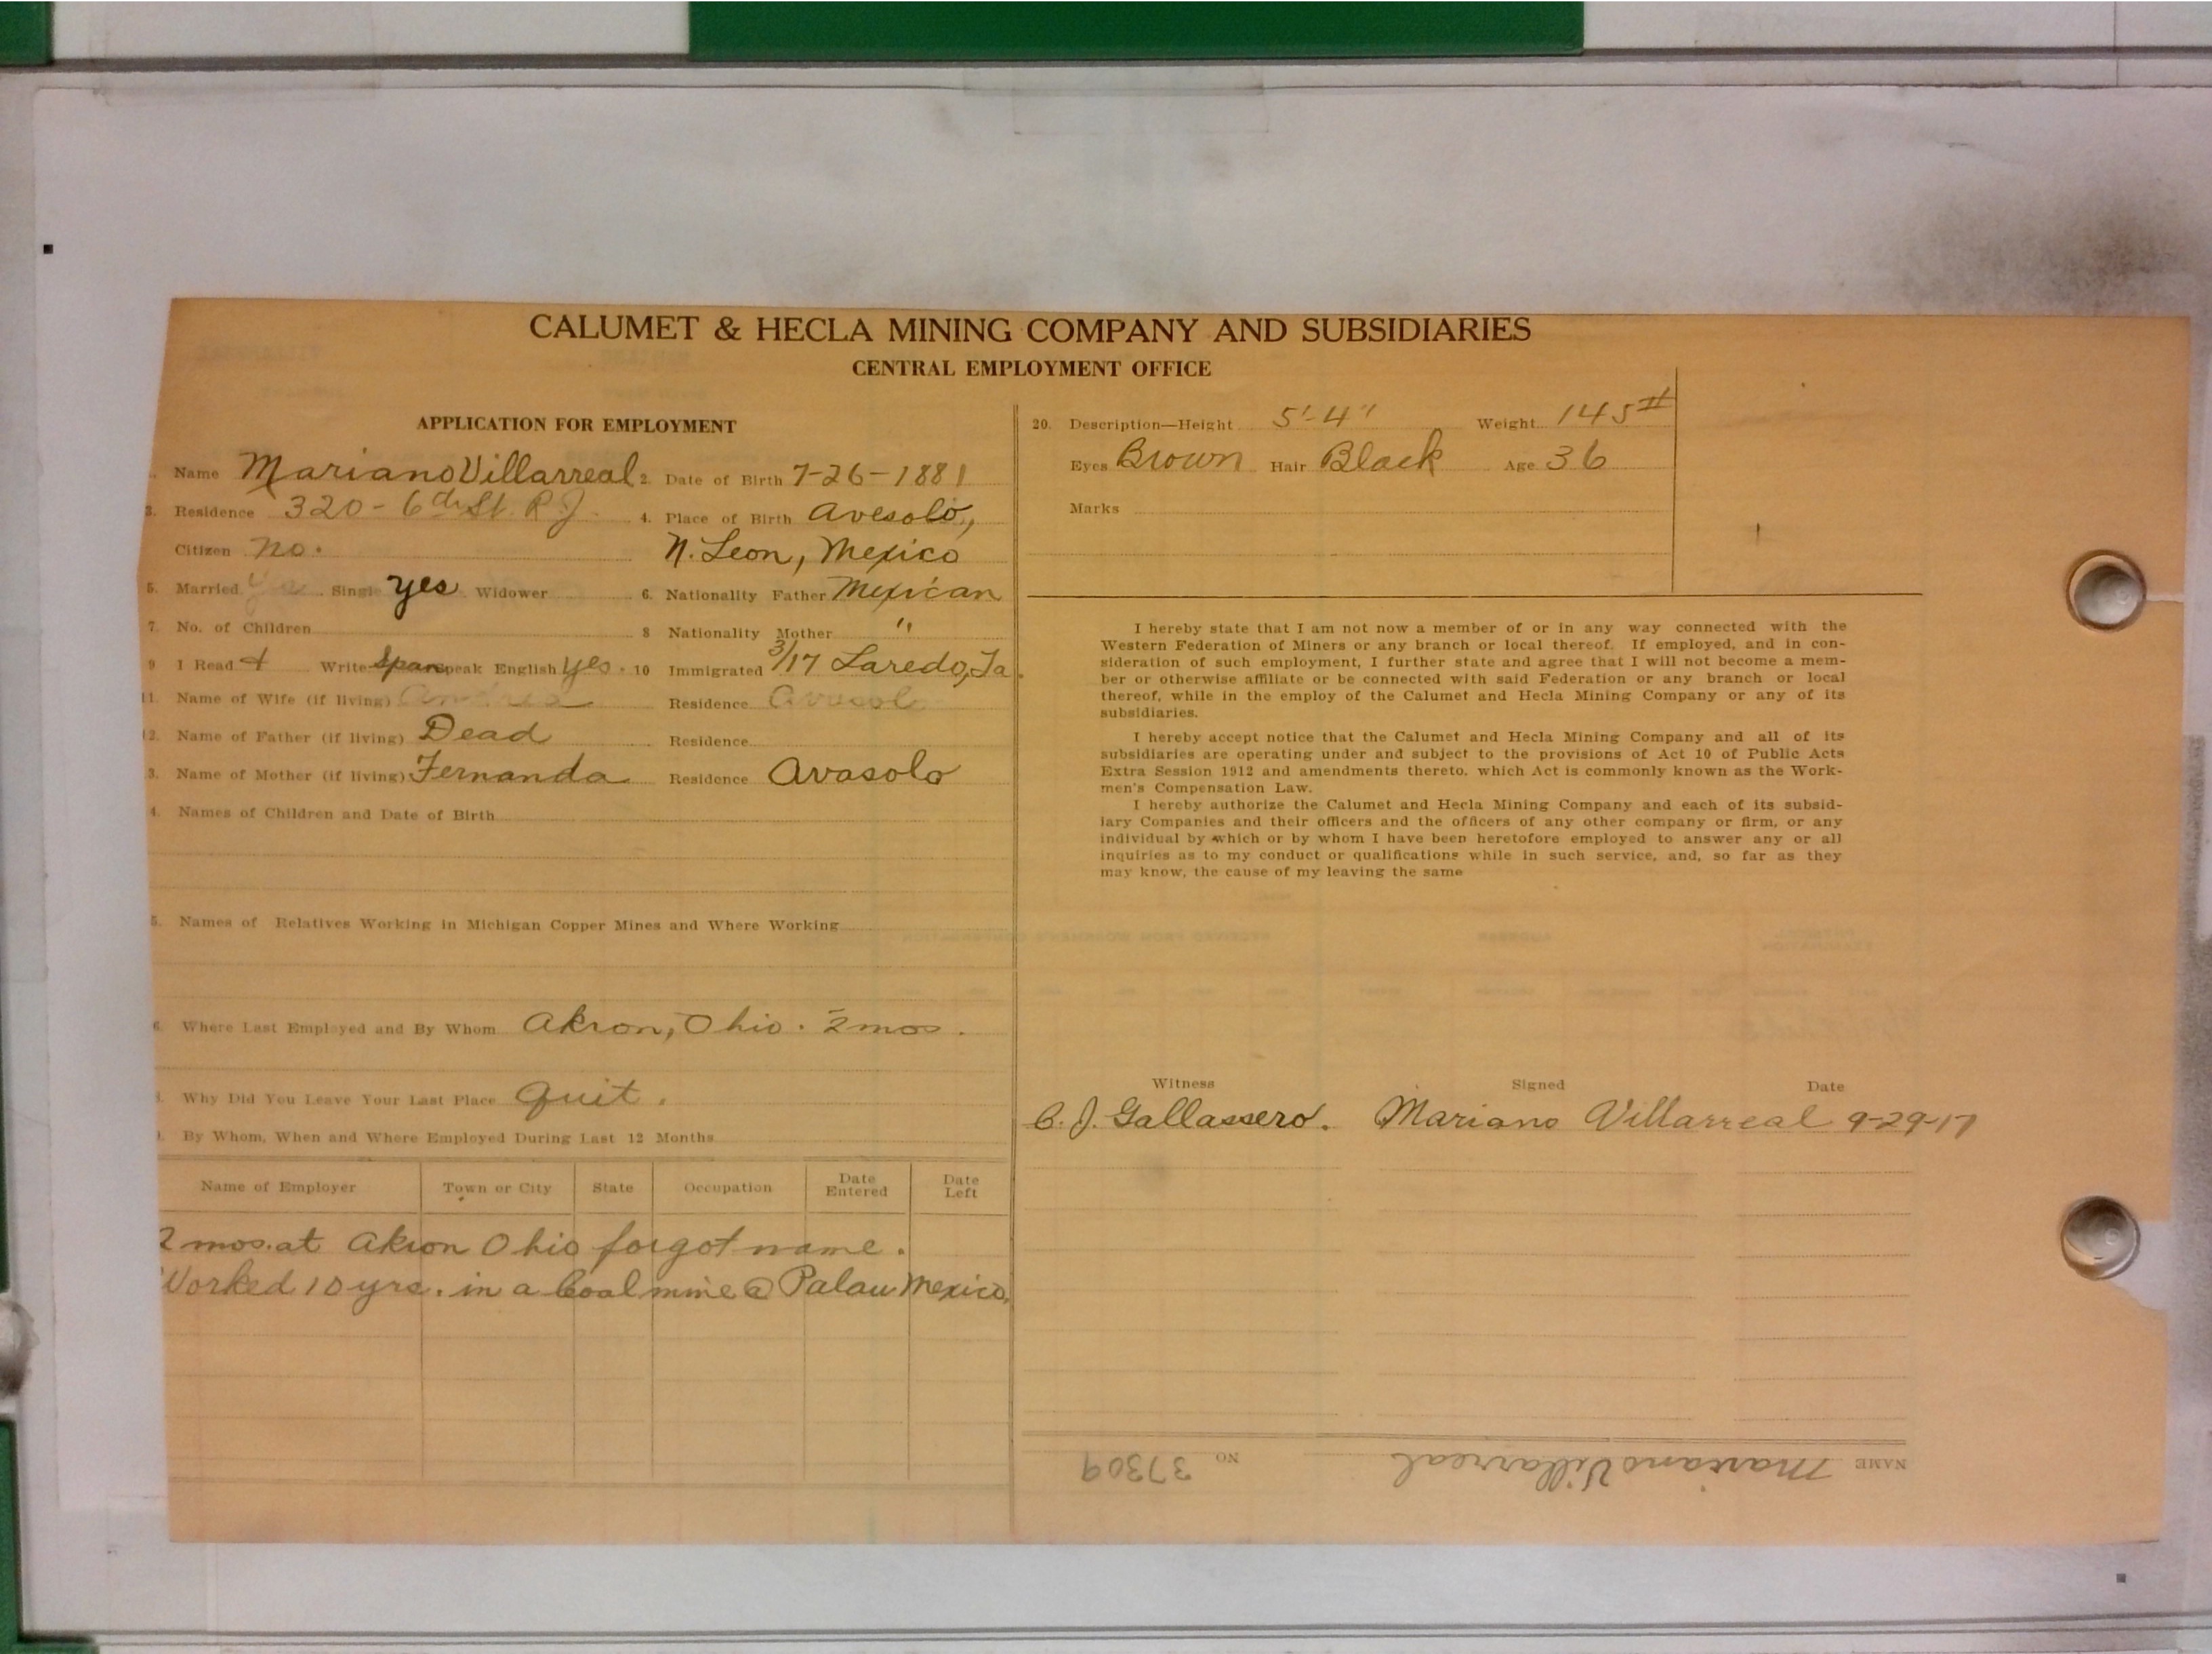 CALUMET & HECLA MINING COMPANY AND SUBSIDIARIES
CENTRAL EMPLOYMENT OFFICE
APPLICATION FOR EMPLOYMENT
Name Mariano Villarreal 2. Date of Birth 7-26-1881
3. Residence 320 - 6th St. R.J. 4. Place of Birth Avesolo,
Citizen no. N. Leon, Mexico
5. Married Yes Single yes Widower 6. Nationality Father Mexican
7. No. of Children 8 Nationality Mother "
9 I Read + Write Span Speak English yes. 10 Immigrated 3/17 Laredo,
11. Name of Wife (if living) Andrea Residence Avasol
12. Name of Father (if living) Dead Residence
3. Name of Mother (if living) Fernanda Residence Avasolo
4. Names of Children and Date of Birth
5. Names of Relatives Working in Michigan Copper Mines and Where Working
6. Where Last Employed and By Whom Akron, Ohio. 2 mos.
Why Did You Leave Your Last Place Quit.
By Whom, When and Where Employed During Last 12 Months
Name of Employer Town or City State Occupation Date Entered Date Left
2 mos. at Akron Ohio forgot name.
Worked 10 yrs. in a Coal mine @ Palau Mexico.
20. Description—Height 5'-4" Weight 145#
Eyes Brown Hair Black Age 36
Marks
I hereby state that I am not now a member of or in any way connected with the
Western Federation of Miners or any branch or local thereof. If employed, and in con-
sideration of such employment, I further state and agree that I will not become a mem-
ber or otherwise affiliate or be connected with said Federation or any branch or local
thereof, while in the employ of the Calumet and Hecla Mining Company or any of its
subsidiaries.
I hereby accept notice that the Calumet and Hecla Mining Company and all of its
subsidiaries are operating under and subject to the provisions of Act 10 of Public Acts
Extra Session 1912 and amendments thereto, which Act is commonly known as the Work-
men's Compensation Law.
I hereby authorize the Calumet and Hecla Mining Company and each of its subsid-
iary Companies and their officers and the officers of any other company or firm, or any
individual by which or by whom I have been heretofore employed to answer any or all
inquiries as to my conduct or qualifications while in such service, and, so far as they
may know, the cause of my leaving the same
Witness Signed Date
C. J. Gallassero. Mariano Villarreal 9-29-17
NAME Mariano Villarreal NO 37309